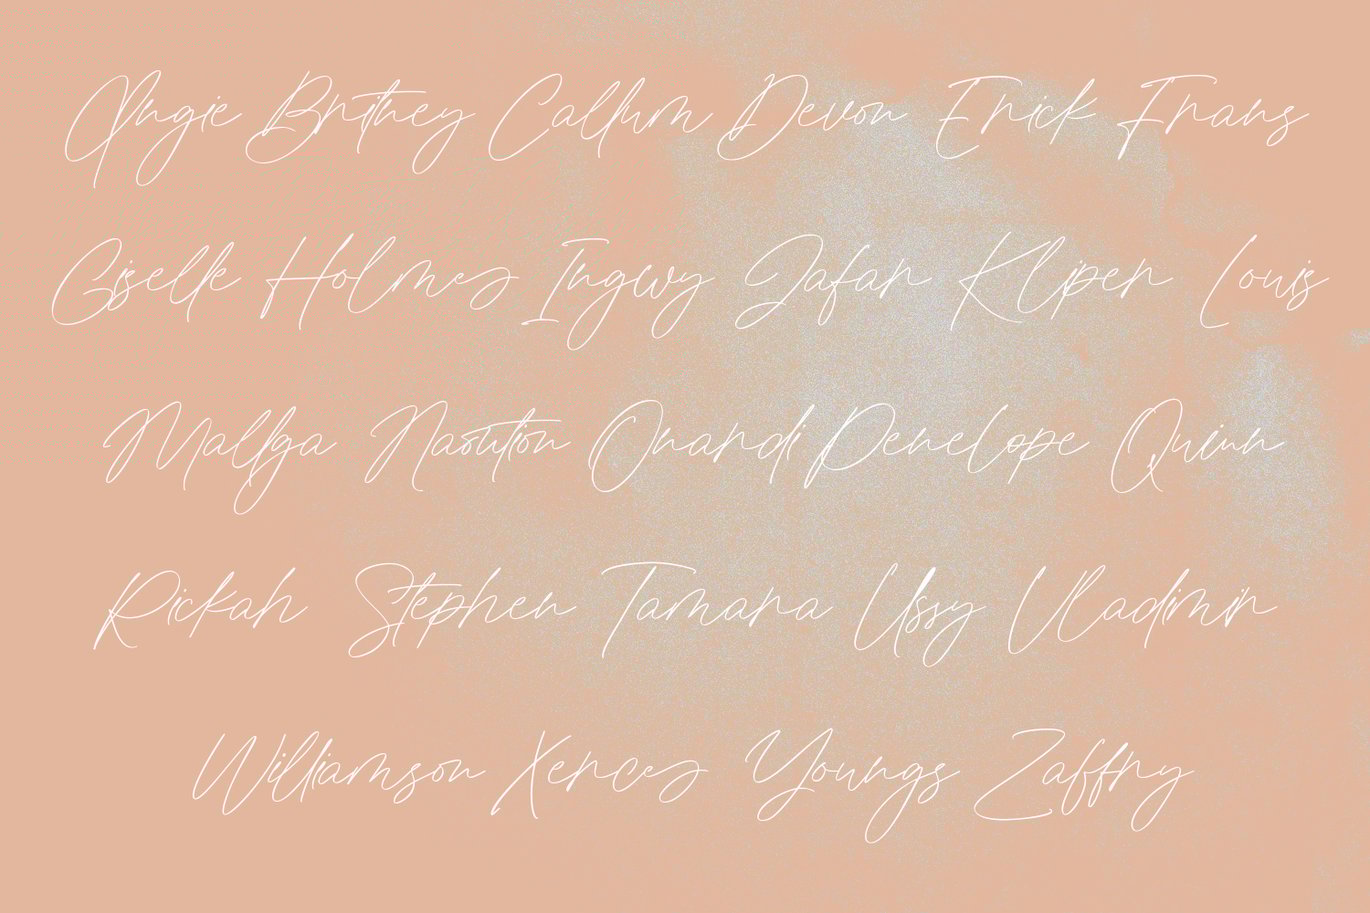 Angie Britney Callum Devon Erick Frans
Giselle Holmes Ingwy Jafar Klipen Louis
Mallga Nasution Onandi Penelope Quinn
Rickah Stephen Tamara Ussy Vladimir
Williamson Xences Youngs Zaffry